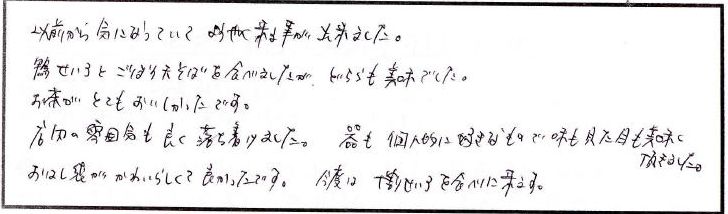 以前から気になっていて ようやく来る事が出来ました。
鴨せいろとごぼう天そばを食べましたが、どちらも美味でした。
お茶がとてもおいしかったです。
店内の雰囲気も良く落ち着けました。 器も個人的に好きなもので味も見た目も美味しく頂きました。
おはし袋がかわいらしくて良かったです。 今度は せいろを食べに来ます。